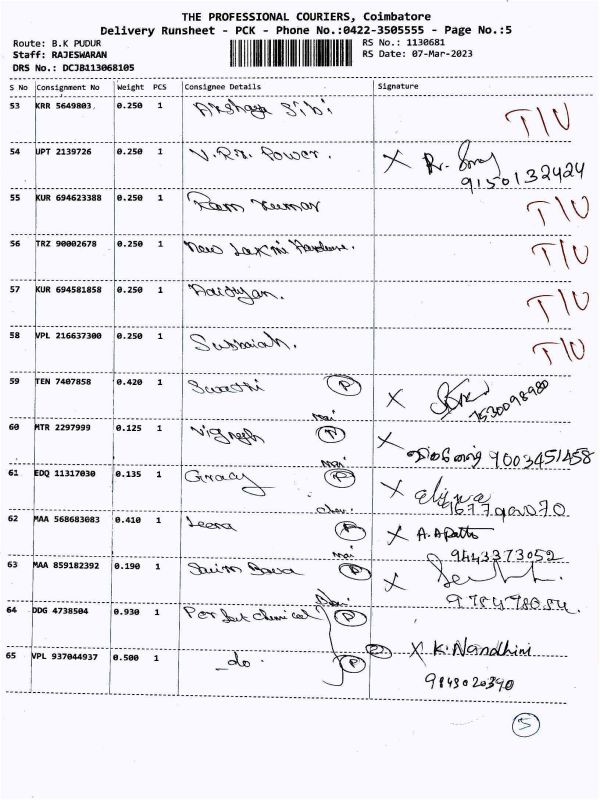 THE PROFESSIONAL COURIERS, Coimbatore
Delivery Runsheet - PCK - Phone No.:0422-3505555 - Page No.:5
Route: B.K PUDUR RS No.: 1130681
Staff: RAJESWARAN RS Date: 07-Mar-2023
DRS No.: DCJB113068105
S No Consignment No Weight PCS Consignee Details Signature
53 KRR 5649803 0.250 1 Akshaya Sibi T/U
54 UPT 2139726 0.250 1 V.R.R. Power. X
9150132424
55 KUR 694623388 0.250 1 Ram Kumar T/U
56 TRZ 90002678 0.250 1 New Laxmi Hardware. T/U
57 KUR 694581858 0.250 1 T/U
58 VPL 216637300 0.250 1 Subbaiah. T/U
59 TEN 7407858 0.420 1 Swathi P X
7530098980
60 MTR 2297999 0.125 1 Vignesh P X
9003451458
61 EDQ 11317030 0.135 1 Gracy P X
62 MAA 568683083 0.410 1 Leera P X
9443373052
63 MAA 859182392 0.190 1 P X
64 DDG 4738504 0.930 1 Perfect chemical P
65 VPL 937044937 0.500 1 _do. P X K. Nandhini
9843020390
5